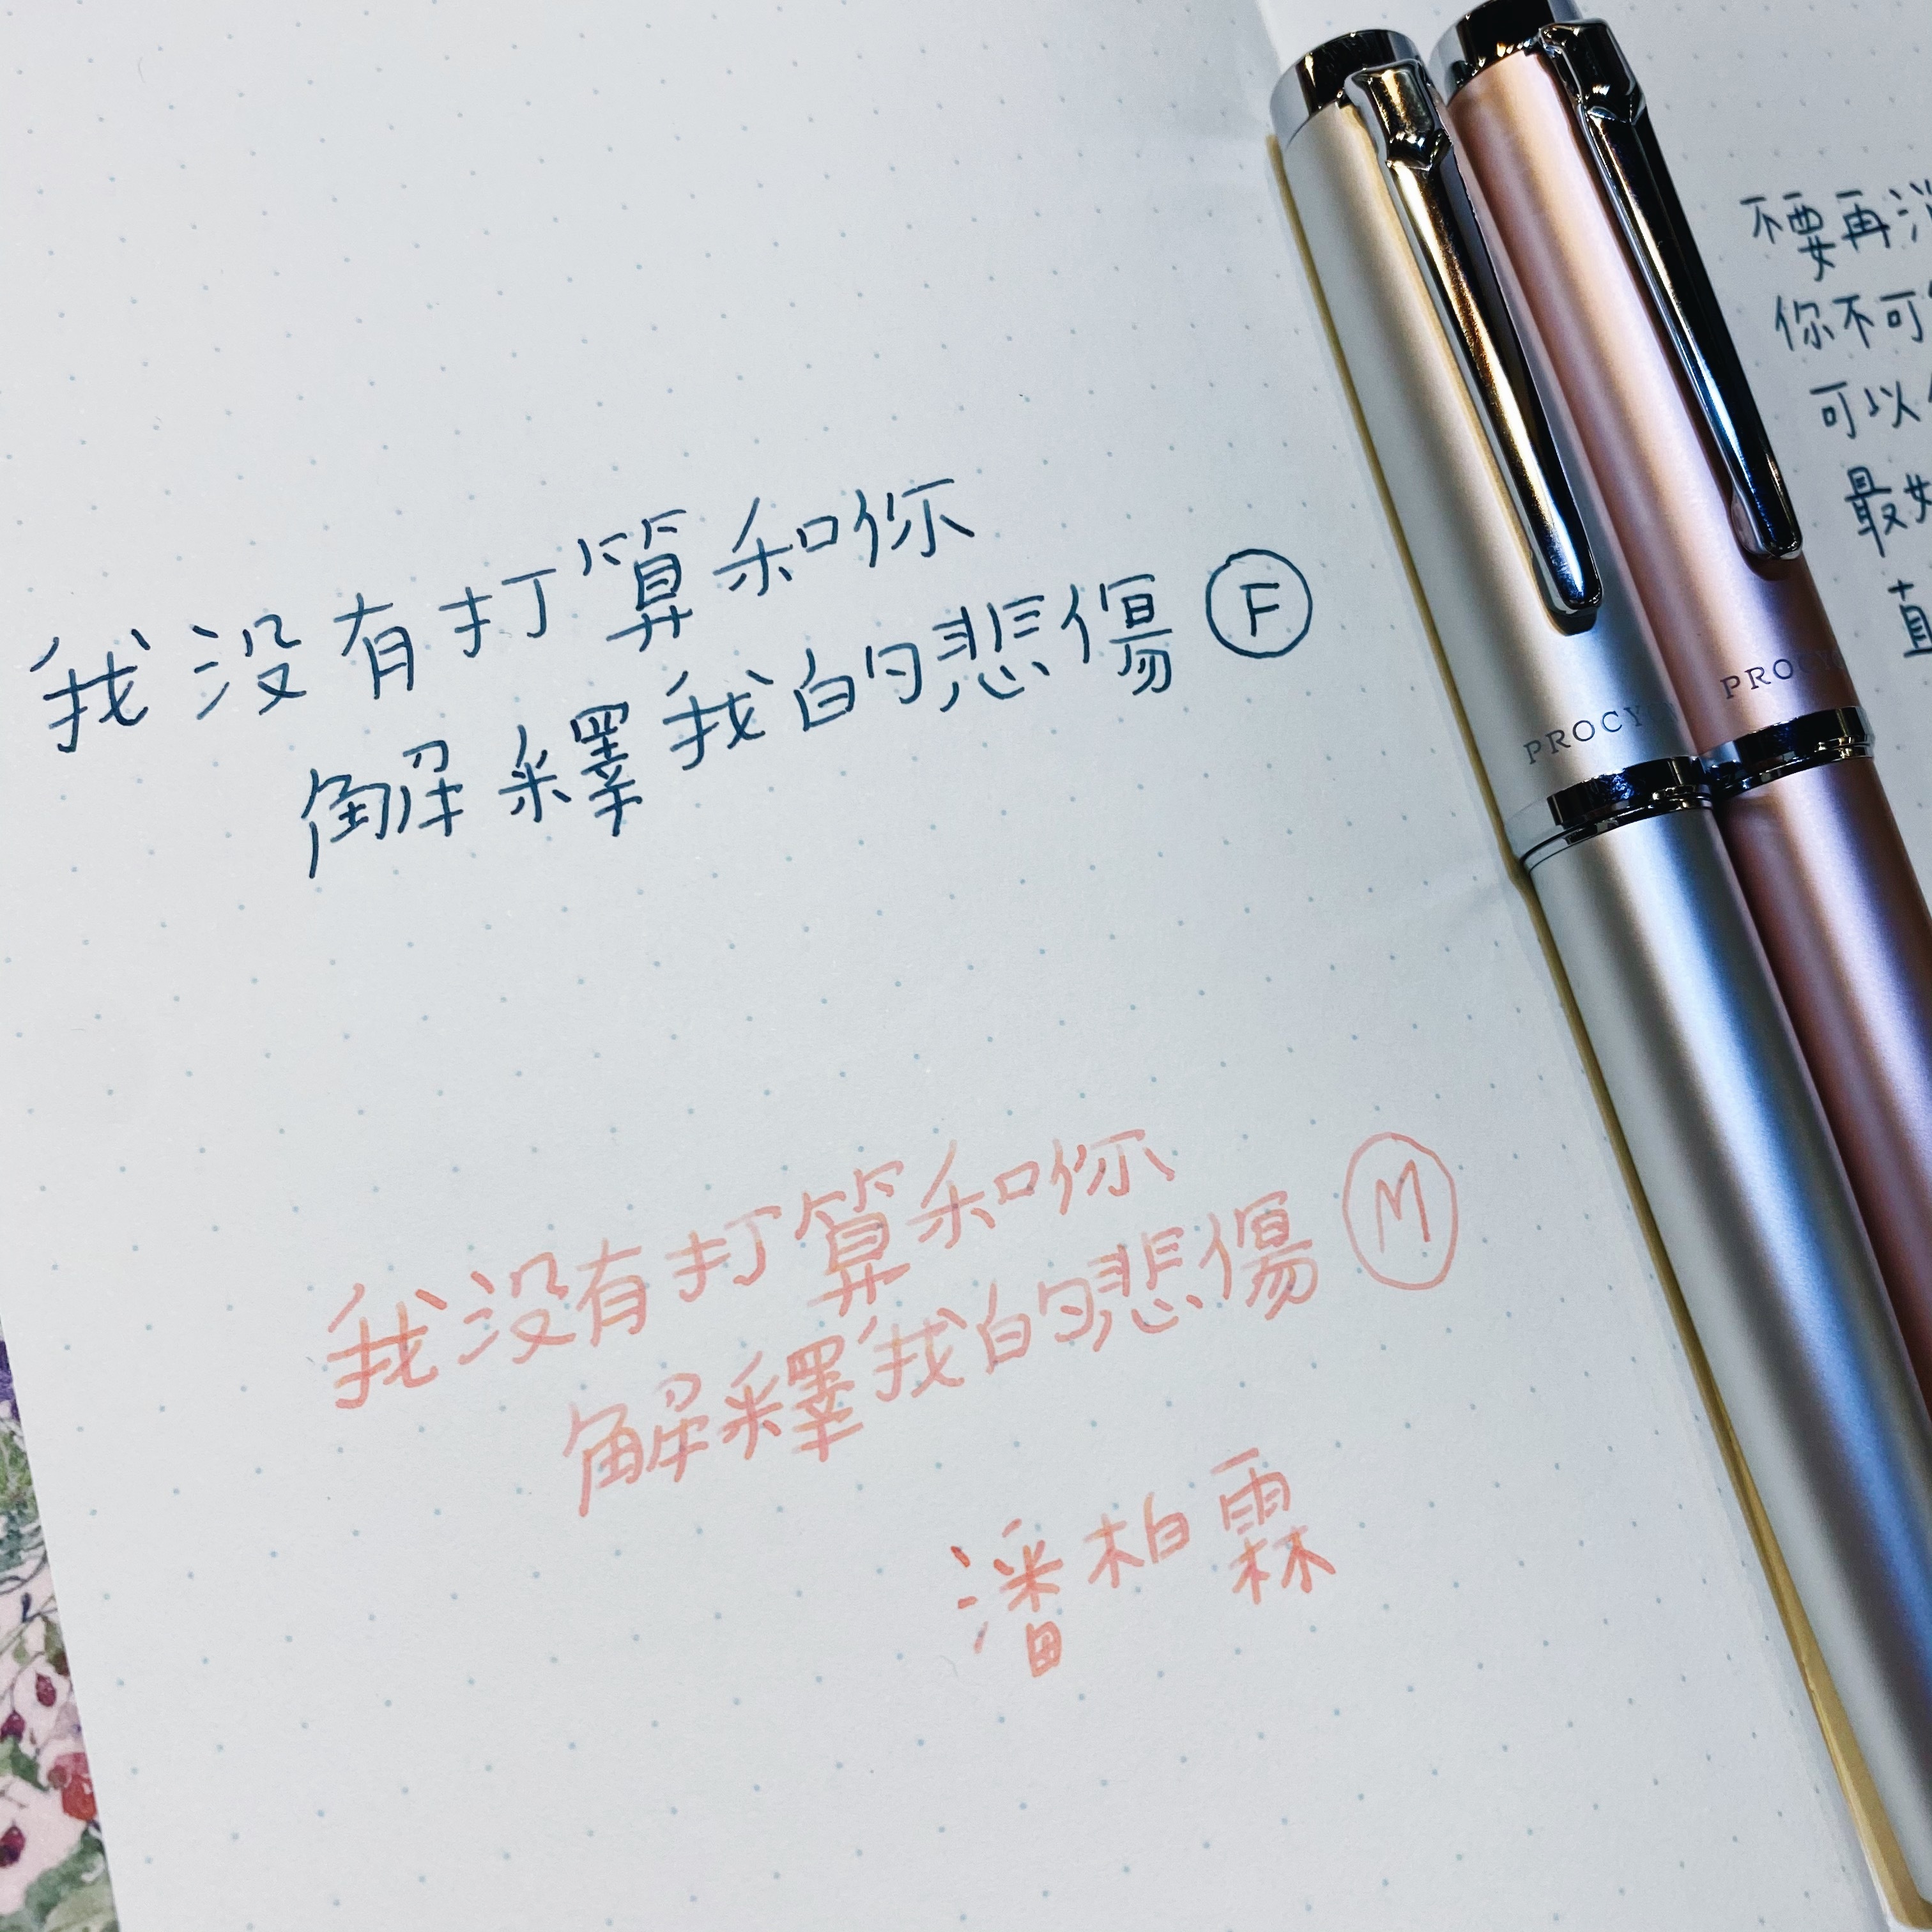 我没有打算和你
解釋我的悲傷 Ⓕ
我没有打算和你
解釋我的悲傷 Ⓜ
潘柏霖
PROCY
PROCY
不要再
你不可
可以
最
直